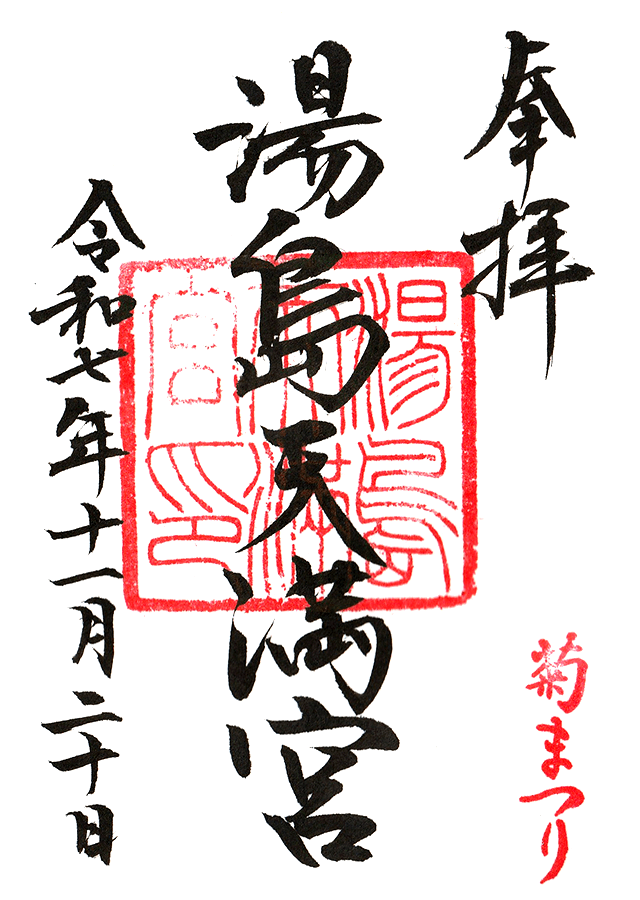 奉拝
菊まつり
湯島天満宮
湯島天満宮印
令和七年十一月二十日